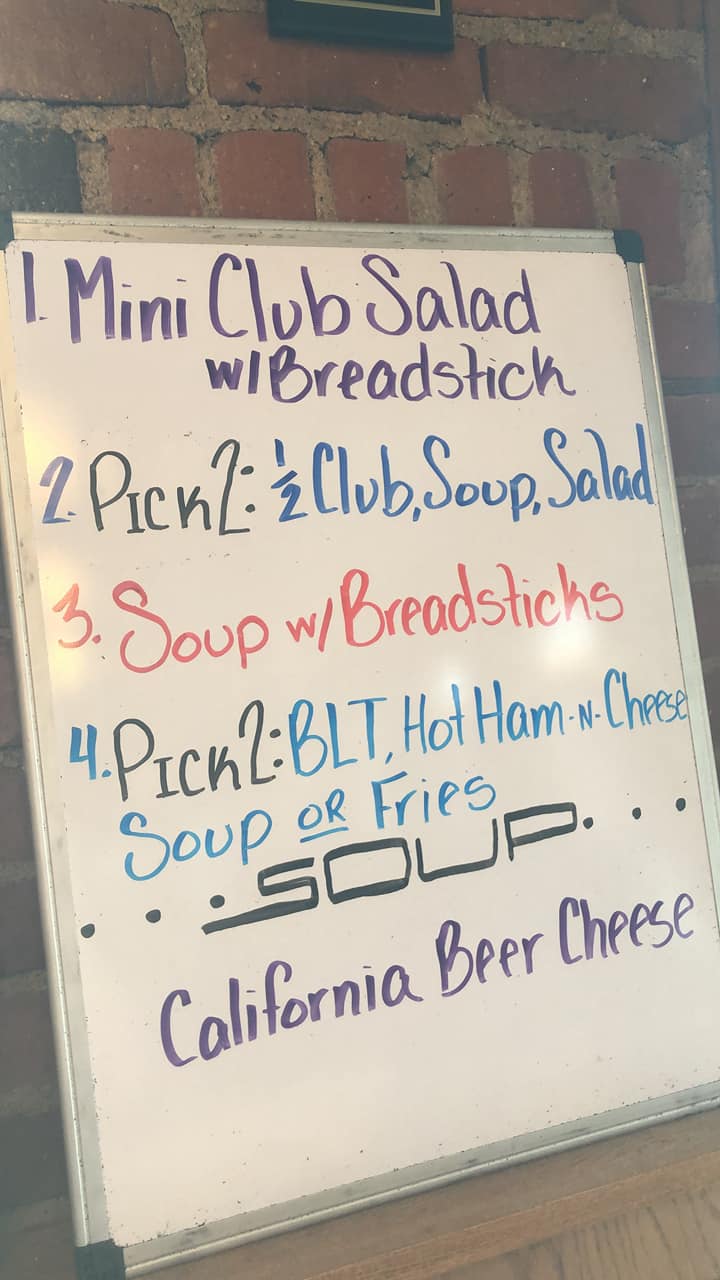 1. Mini Club Salad
w/Breadstick
2. Pick 2: 1/2 Club, Soup, Salad
3. Soup w/Breadsticks
4. Pick 2: BLT, Hot Ham-N-Cheese
Soup OR Fries
...SOUP...
California Beer Cheese